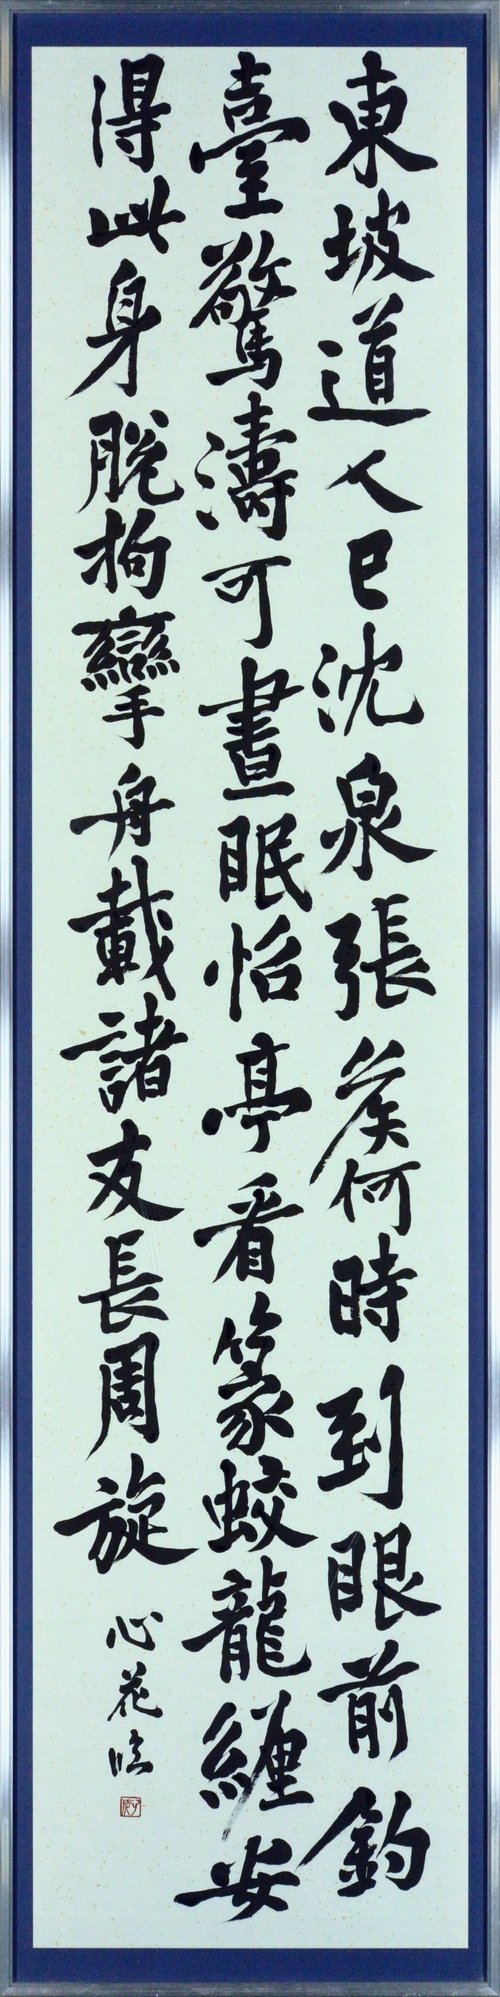 東坡道人已沈泉張矦何時到眼前釣
臺驚濤可晝眠怡亭看篆蛟龍纏安
得此身脫拘攣舟載諸友長周旋
心花臨